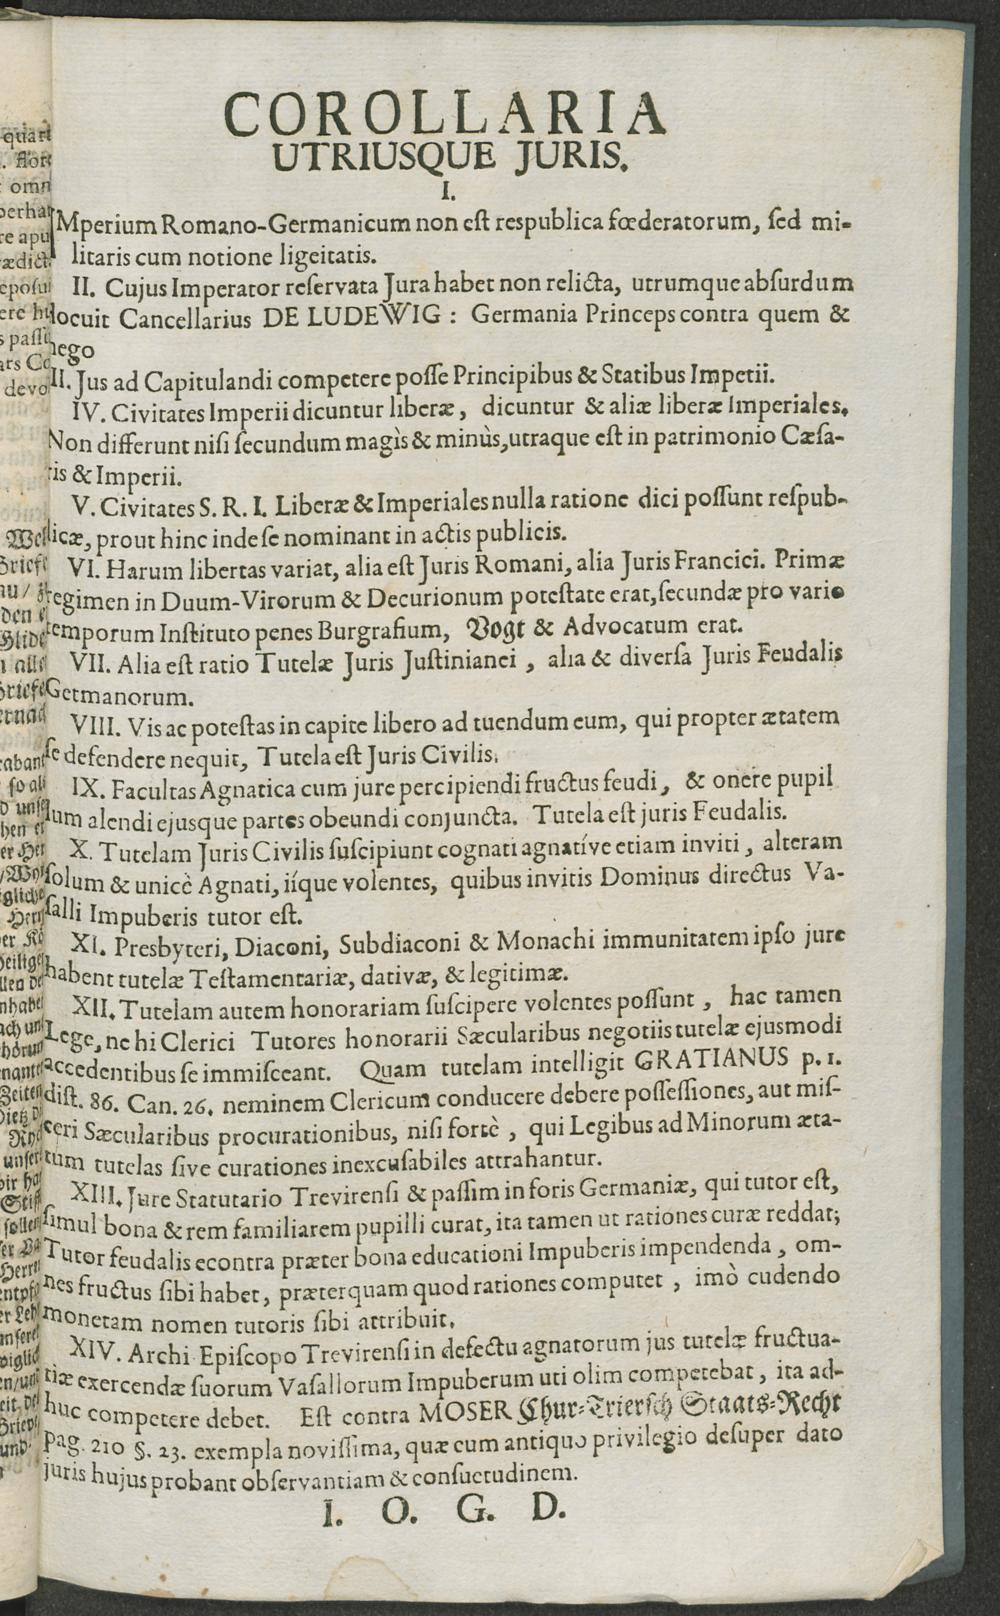 COROLLARIA
UTRIUSQUE JURIS.
I.
IMperium Romano-Germanicum non est respublica fœderatorum, sed mi-
litaris cum notione ligeitatis.
II. Cujus Imperator reservata Jura habet non relicta, utrumque absurdum
locuit Cancellarius DE LUDEWIG : Germania Princeps contra quem &
nego
II. Jus ad Capitulandi competere posse Principibus & Statibus Impetii.
IV. Civitates Imperii dicuntur liberæ, dicuntur & aliæ liberæ Imperiales.
Non differunt nisi secundum magìs & minùs, utraque est in patrimonio Cæsa-
ris & Imperii.
V. Civitates S. R. I. Liberæ & Imperiales nulla ratione dici possunt respub-
licæ, prout hinc inde se nominant in actis publicis.
VI. Harum libertas variat, alia est Juris Romani, alia Juris Francici. Primæ
regimen in Duum-Virorum & Decurionum potestate erat, secundæ pro vario
temporum Instituto penes Burgrafium, Vogt & Advocatum erat.
VII. Alia est ratio Tutelæ Juris Justinianei , alia & diversa Juris Feudalis
Germanorum.
VIII. Vis ac potestas in capite libero ad tuendum eum, qui propter ætatem
se defendere nequit, Tutela est Juris Civilis.
IX. Facultas Agnatica cum jure percipiendi fructus feudi, & onere pupil
lum alendi ejusque partes obeundi conjuncta. Tutela est juris Feudalis.
X. Tutelam Juris Civilis suscipiunt cognati agnatíve etiam inviti , alteram
solum & unicè Agnati, iíque volentes, quibus invitis Dominus directus Va-
salli Impuberis tutor est.
XI. Presbyteri, Diaconi, Subdiaconi & Monachi immunitatem ipso jure
habent tutelæ Testamentariæ, dativæ, & legitimæ.
XII. Tutelam autem honorariam suscipere volentes possunt , hac tamen
Lege, ne hi Clerici Tutores honorarii Sæcularibus negotiis tutelæ ejusmodi
accedentibus se immisceant. Quam tutelam intelligit GRATIANUS p. 1.
dist. 86. Can. 26. neminem Clericum conducere debere possessiones, aut mis-
ceri Sæcularibus procurationibus, nisi fortè , qui Legibus ad Minorum æta-
tum tutelas sive curationes inexcusabiles attrahantur.
XIII. Jure Statutario Trevirensi & passim in foris Germaniæ, qui tutor est,
simul bona & rem familiarem pupilli curat, ita tamen ut rationes curæ reddat;
Tutor feudalis econtra præter bona educationi Impuberis impendenda , om-
nes fructus sibi habet, præterquam quod rationes computet , imò cudendo
monetam nomen tutoris sibi attribuit.
XIV. Archi Episcopo Trevirensi in defectu agnatorum jus tutelæ fructua-
tiæ exercendæ suorum Vasallorum Impuberum uti olim competebat, ita ad-
huc competere debet. Est contra MOSER Chur-Triersch Staats-Recht
pag. 210 §. 23. exempla novissima, quæ cum antiquo privilegio desuper dato
juris hujus probant observantiam & consuetudinem.
I. O. G. D.